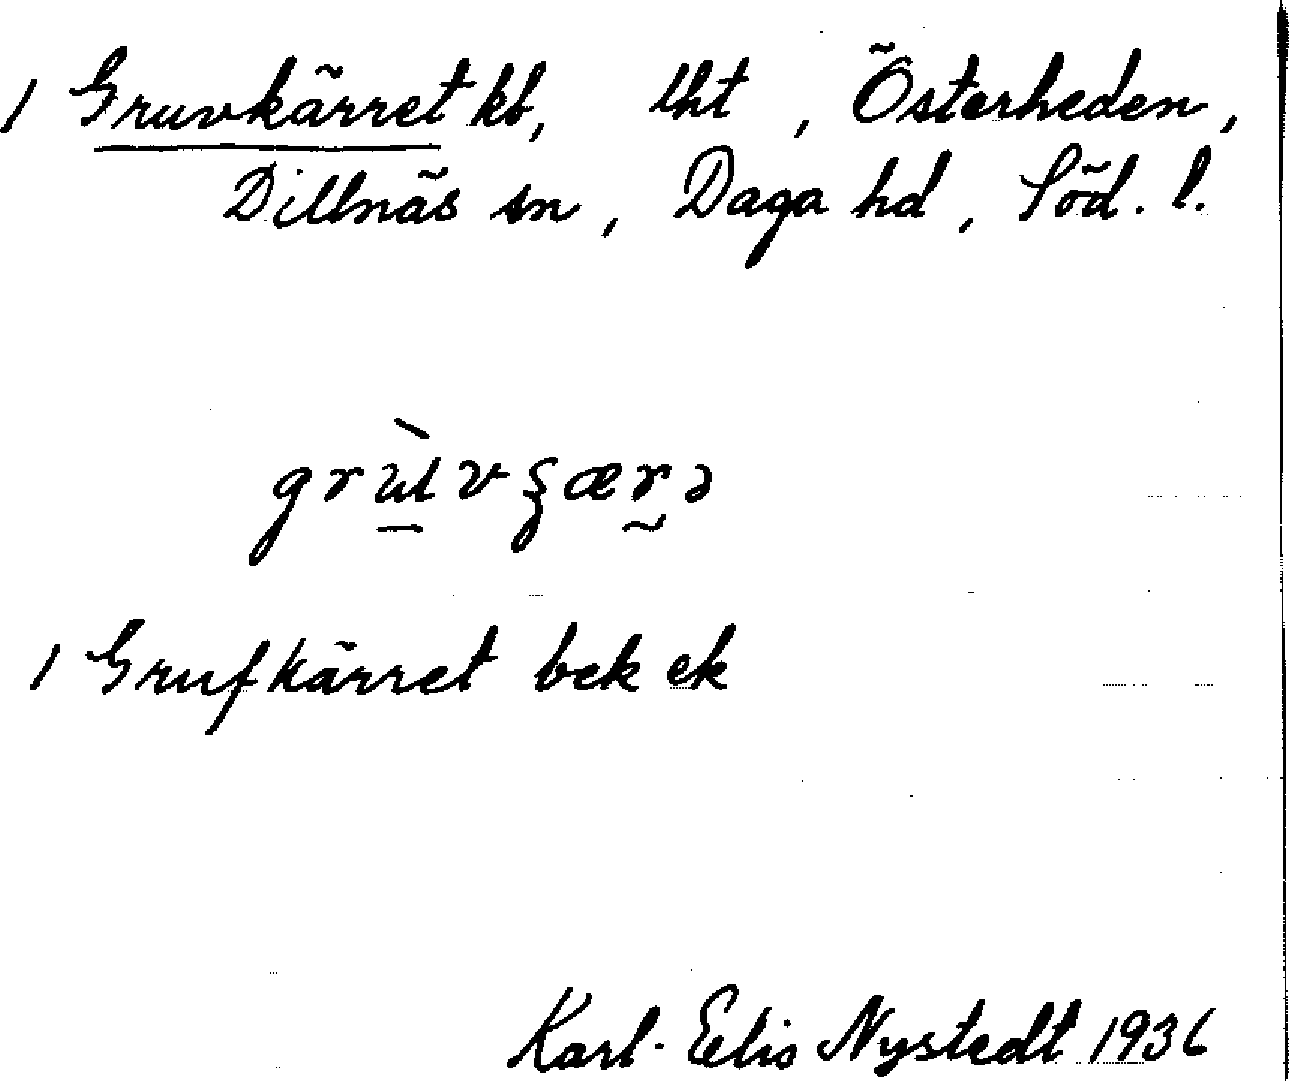 1 Gruvkärret kb, lht , Österheden,
Dillnäs sn, Daga hd, Söd. l.
1 Grufkärret bek ek
Karl-Elis Nystedt 1936